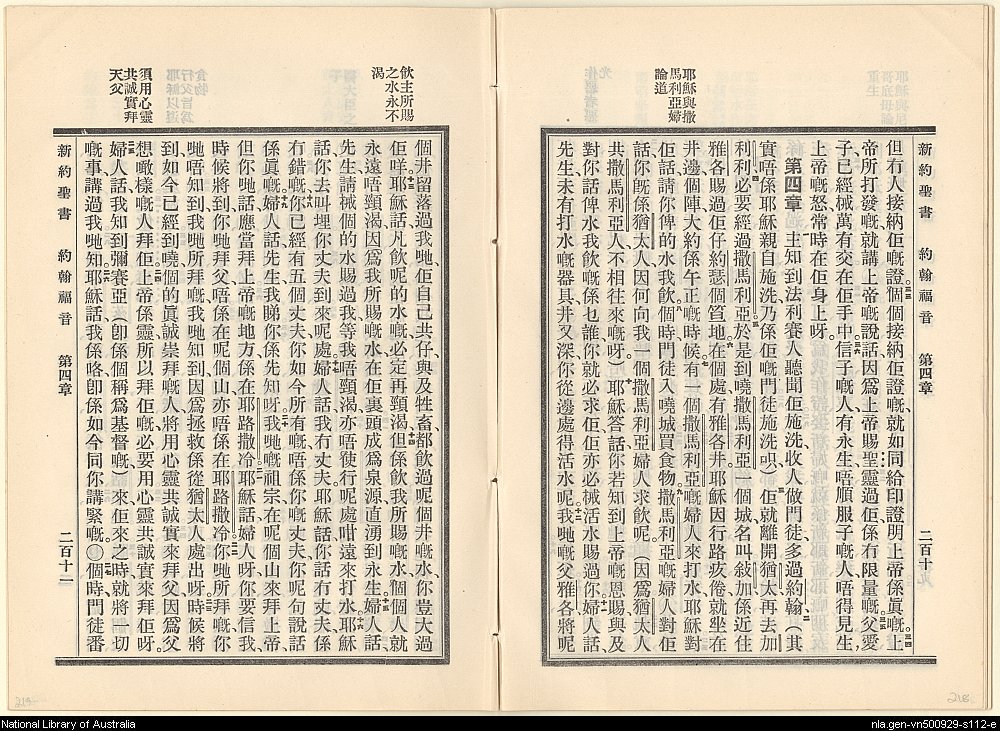 耶穌與撒
馬利亞婦
論道
新約聖書 約翰福音 第四章 二百十
但有人接納佢嘅證個個接納佢證嘅就如同給印證明上帝係眞嘅上
帝所打發嘅就講上帝嘅說話因爲上帝賜聖靈過佢係有限量嘅父愛
子已經械萬有交在佢手中信子嘅人有永生唔順服子嘅人唔得見生
上帝嘅怒常時在佢身上呀
第四章 主知到法利賽人聽聞佢施洗收人做門徒多過約翰（其
實唔係耶穌親自施洗乃係佢嘅門徒施洗呮）佢就離開猶太再去加
利利必要經過撒馬利亞於是到曉撒馬利亞一個城名叫敍加係近住
雅各賜過佢仔約瑟個笪地在個處有雅各井耶穌因行路疚倦就坐在
井邊個陣大約係午正嘅時候有一個撒馬利亞嘅婦人來打水耶穌對
佢話請你俾的水我飲個時門徒入曉城買食物撒馬利亞嘅婦人對佢
話你旣係猶太人因何向我一個撒馬利亞婦人求飲呢因爲猶太人
共撒馬利亞人不相往來嘅呀耶穌答話你若知到上帝嘅恩賜與及
對你話俾水我飲嘅係乜誰你就必求佢佢亦必械活水賜過你婦人話
先生未有打水嘅器具井又深你從邊處得活水呢我哋嘅父雅各將呢
飲主所賜
之水永不
渴
須用心靈
共誠實拜
天父
個井留落過我哋佢自己共仔與及牲畜都飲過呢個井嘅水你豈大過
佢咩耶穌話凡飲呢的水嘅必定再頸渴但係飲我所賜嘅水個個人就
永遠唔頸渴因爲我所賜嘅水在佢裏頭成爲泉源直湧到永生婦人話
先生請械個的水賜過我等我唔頸渴亦唔使行呢處咁遠來打水耶穌
話你去叫埋你丈夫到來呢處婦人話我冇丈夫耶穌話你話冇丈夫係
冇錯嘅你已經有五個丈夫你如今所有嘅唔係你嘅丈夫你呢句說話
係眞嘅婦人話先生我睇你係先知呀我哋嘅祖宗在呢個山來拜上帝
但你哋話應當拜上帝嘅地方係在耶路撒冷耶穌話婦人呀你要信我
時候將到你哋拜父唔係在呢個山亦唔係在耶路撒冷你哋所拜嘅你
哋唔知到我哋所拜嘅我哋知到因爲拯救係從猶太人處出呀時候將
到如今已經到曉個的眞誠崇拜嘅人將用心靈共誠實來拜父因爲父
想噉樣嘅人拜佢上帝係靈所以拜佢嘅必要用心靈共誠實來拜佢呀
婦人話我知到彌賽亞（卽係個稱爲基督嘅）來佢來之時就將一切
嘅事講過我哋知耶穌話我係咯卽係如今同你講緊嘅〇個時門徒番
新約聖書 約翰福音 第四章 二百十一
219
218
National Library of Australia
nla.gen-vn500929-s112-e